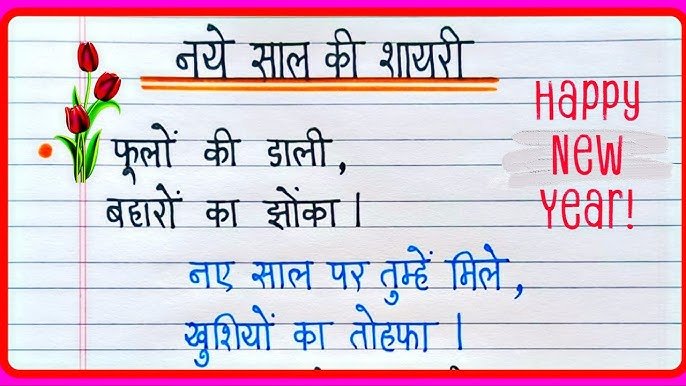 नये साल की शायरी
फूलों की डाली,
बहारों का झोंका।
नए साल पर तुम्हें मिले,
खुशियों का तोहफा।
Happy
New
Year!